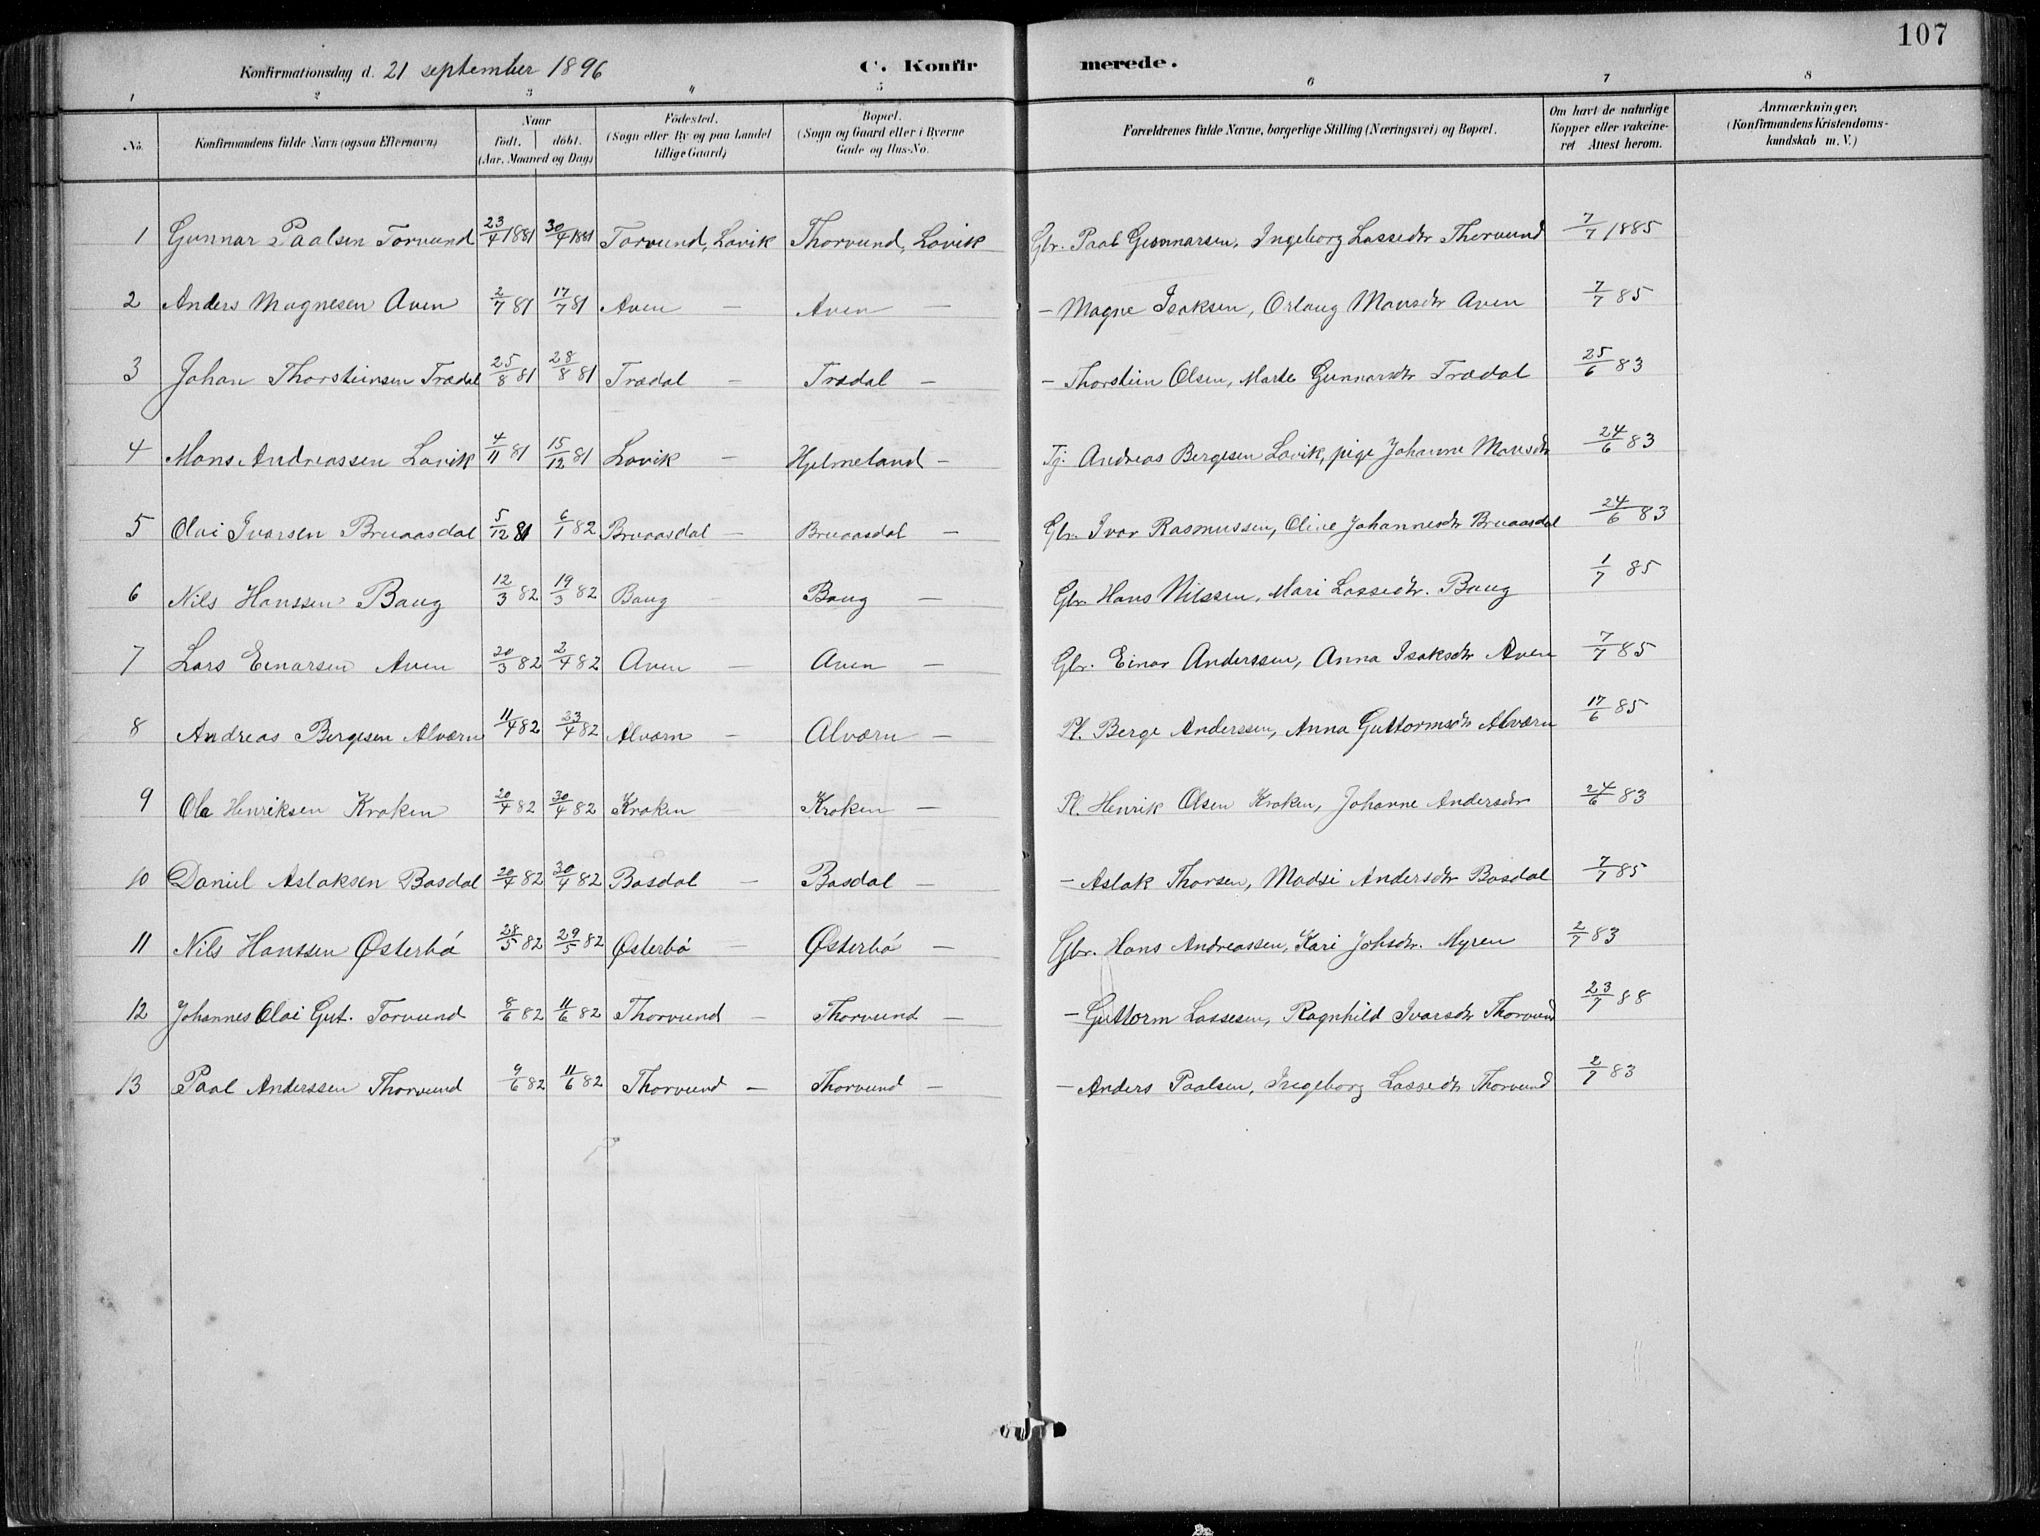 107
Konfirmationsdag d. 21 september 1896 C. Konfirmerede.
1 2 3 4 5 6 7 8
No. Konfirmandens fulde Navn (ogsaa Efternavn) Naar født, døbt. (Aar, Maaned og Dag) Fødested. (Sogn eller By og paa Landet tillige Gaard) Bopæl. (Sogn og Gaard eller i Byerne Gade og Hus-No. Forældrenes fulde Navne, borgerlige Stilling (Næringsvei) og Bopæl. Om havt de naturlige Kopper eller vakcineret Attest herom. Anmærkninger. (Konfirmandens Kristendomskundskab m. V.)
1 Gunnar Paalsen Torvund 23/4 1881 30/4 1881 Torvund, Lavik Thorvund, Lavik Gbr. Paal Gunnarsen, Ingeborg Lassedtr Thorvund 7/7 1885
2 Anders Magnesen Aven 2/7 81 17/7 81 Aven — Aven — — Magne Isaksen, Orlaug Mansdtr Aven 7/7 85
3 Johan Thorsteinsen Trædal 25/8 81 28/8 81 Trædal — Trædal — — Thorstein Olsen, Marte Gunnarsdtr Trædal 25/6 83
4 Mons Andreassen Lavik 4/11 81 15/12 81 Lavik — Hjelmeland — Tj. Andreas Bergesen Lavik, pige Johanne Mansdtr 24/6 83
5 Olai Ivarsen Bruaasdal 5/12 81 6/1 82 Bruaasdal — Bruaasdal — Gbr. Ivar Rasmussen, Oline Johannesdtr Bruaasdal 24/6 83
6 Nils Hanssen Baug 12/3 82 19/3 82 Baug — Baug — Gbr. Hans Nilssen, Mari Lassedtr. Baug 1/7 85
7 Lars Einarsen Aven 20/3 82 2/4 82 Aven — Aven — Gbr. Einar Anderssen, Anna Isaksdtr Aven 7/7 85
8 Andreas Bergesen Alværn 11/4 82 23/4 82 Alværn — Alværn — Pl. Berge Anderssen, Anna Guttormsdtr Alværn 17/6 85
9 Ole Henriksen Kroken 20/4 82 30/4 82 Kroken — Kroken — Pl. Henrik Olsen Kroken, Johanne Andersdtr 24/6 83
10 Daniel Aslaksen Basdal 20/4 82 30/4 82 Basdal — Basdal — — Aslak Thorsen, Madsi Andersdtr Basdal 7/7 85
11 Nils Hanssen Østerbø 28/5 82 29/5 82 Østerbø — Østerbø — Gbr. Hans Andreassen, Kari Johsdtr. Myren 2/7 83
12 Johannes Olai Gut. Torvund 8/6 82 11/6 82 Thorvund — Thorvund — — Guttorm Lassesen, Ragnhild Ivarsdtr Thorvund 23/7 88
13 Paal Anderssen Thorvund 9/6 82 11/6 82 Thorvund — Thorvund — — Anders Paalsen, Ingeborg Lassedtr Thorvund 2/7 83